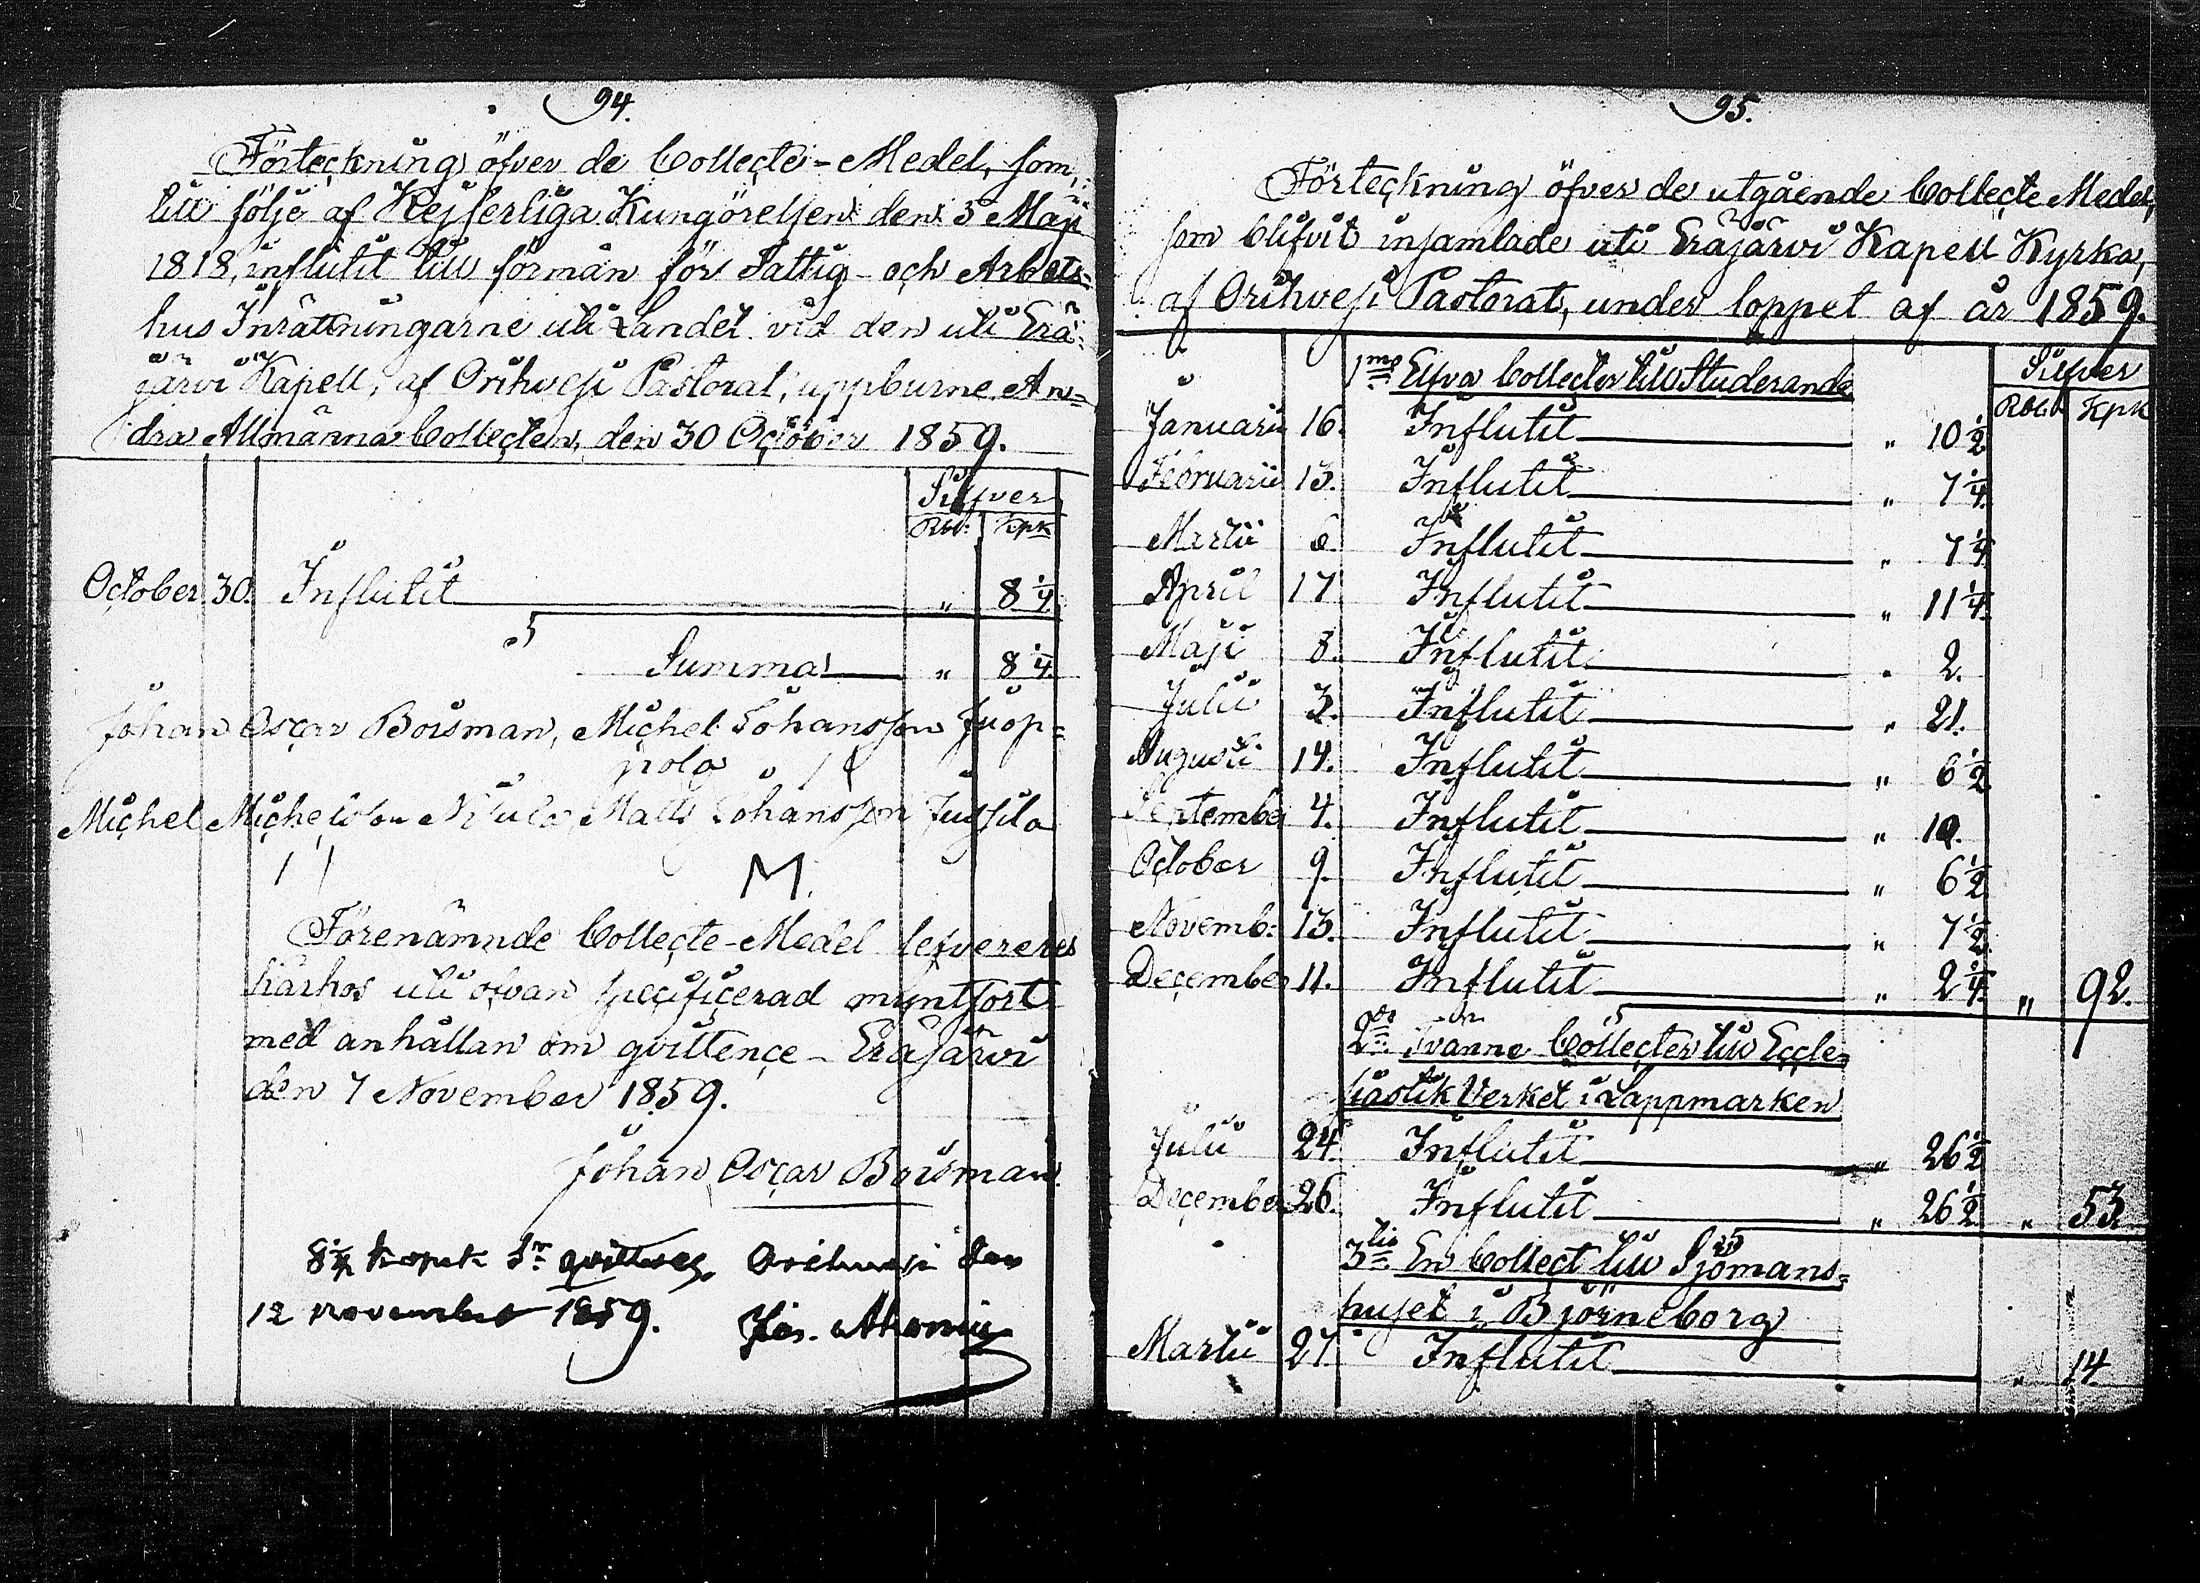 94.
Förteckning öfver de Collecte-Medel, som,
till följe af Kejserliga Kungörelsen den 5 Maji
1818, influtit till förmån för Fattig- och Arbets-
hus Inrättningarne uti Landet vid den uti Erä-
järvi Kapell, af Orihvesi Pastorat, uppburne An-
dra Allmänna Collecten, den 30 October 1859.
Silfver
Rbl: Kpk
October 30. Influtit " 8 1/4
Summa " 8 1/4.
Johan Oscar Boisman, Michel Johansson Juop-
pola
Michel Michelsson Matts Johansson Jussila
M.
Förenämnde Collecte-Medel lefvereres
härhos uti ofvan specificerad myntsort
med anhållan om qvittence - Eräjärvi
den 7 November 1859.
Johan Oscar Boisman.
8 1/4 kopek Sr qvitteras, Orihvesi den
12 november 1859.
95.
Förteckning öfver de utgående Collecte Medel,
som blifvit insamlade uti Eräjärvi Kapell Kyrka,
af Orihvesi Pastorat, under loppet af år 1859.
1mo Elfva Collecter till Studerande
Silfver
Rbl: Kpk
Januarii 16. Influtit " 10 1/2
Februarii 13. Influtit " 7 1/4.
Martii 6. Influtit " 7 1/4
April 17 Influtit " 11 1/4.
Maji 8. Influtit " 2.
Julii 3. Influtit " 21.
Augusti 14. Influtit " 6 1/2
September 4. Influtit " 10.
October 9. Influtit " 6 1/2
Novemb: 13. Influtit " 7 1/2
December 11. Influtit " 2 2/4. " 92.
2do Tvänne Collecter till Eccle-
siastik Verket i Lappmarken
Julii 24. Influtit " 26 1/2
December 26. Influtit " 26 1/2 " 53
3tio En Collect till Sjömans-
huset i Björneborg
Martii 27. Influtit " 14